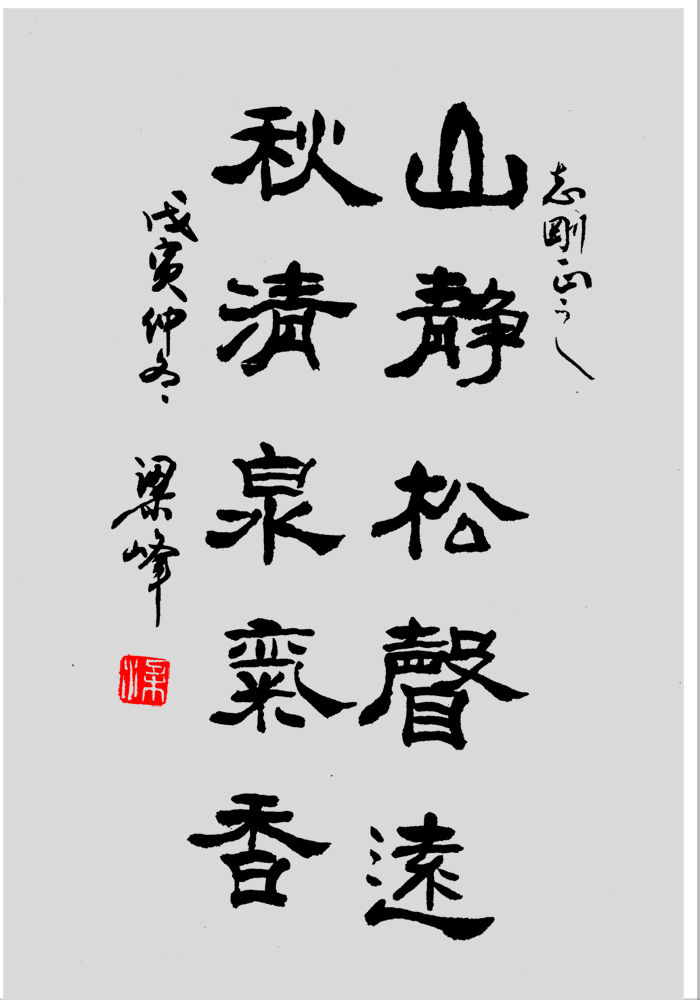 志剛正之
山靜松聲遠
秋清泉氣香
戊寅仲冬 梁峰